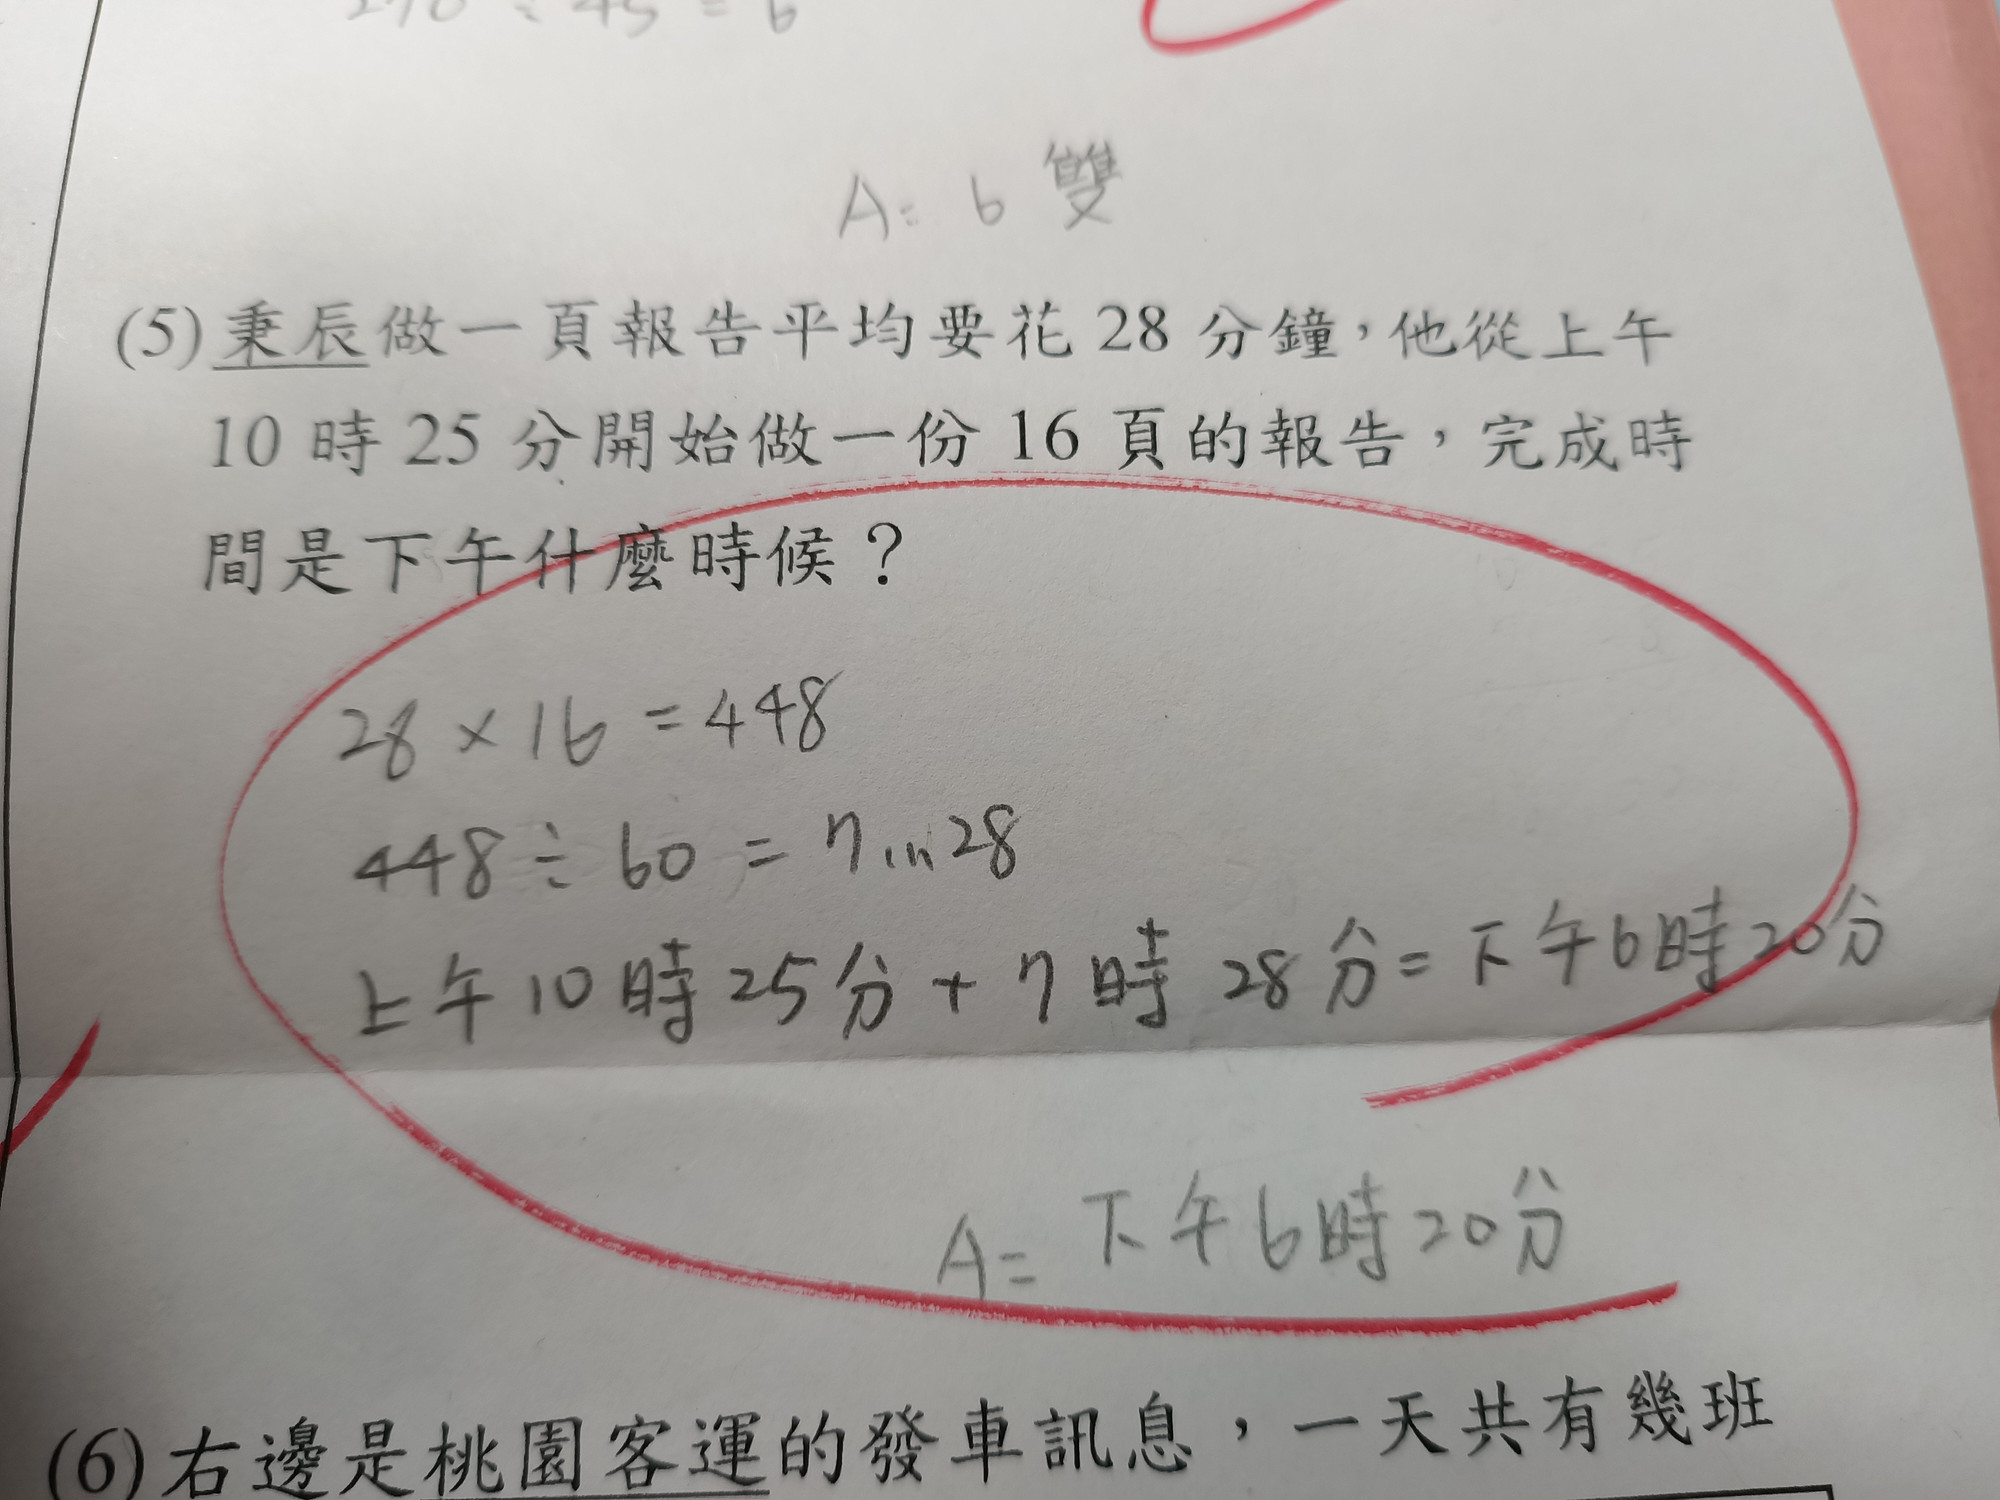 A= 6 雙
(5) 秉辰做一頁報告平均要花 28 分鐘，他從上午
10 時 25 分開始做一份 16 頁的報告，完成時
間是下午什麼時候？
28 × 16 = 448
448 ÷ 60 = 7...28
上午10時25分+7時28分=下午6時20分
A= 下午6時20分
(6) 右邊是桃園客運的發車訊息，一天共有幾班